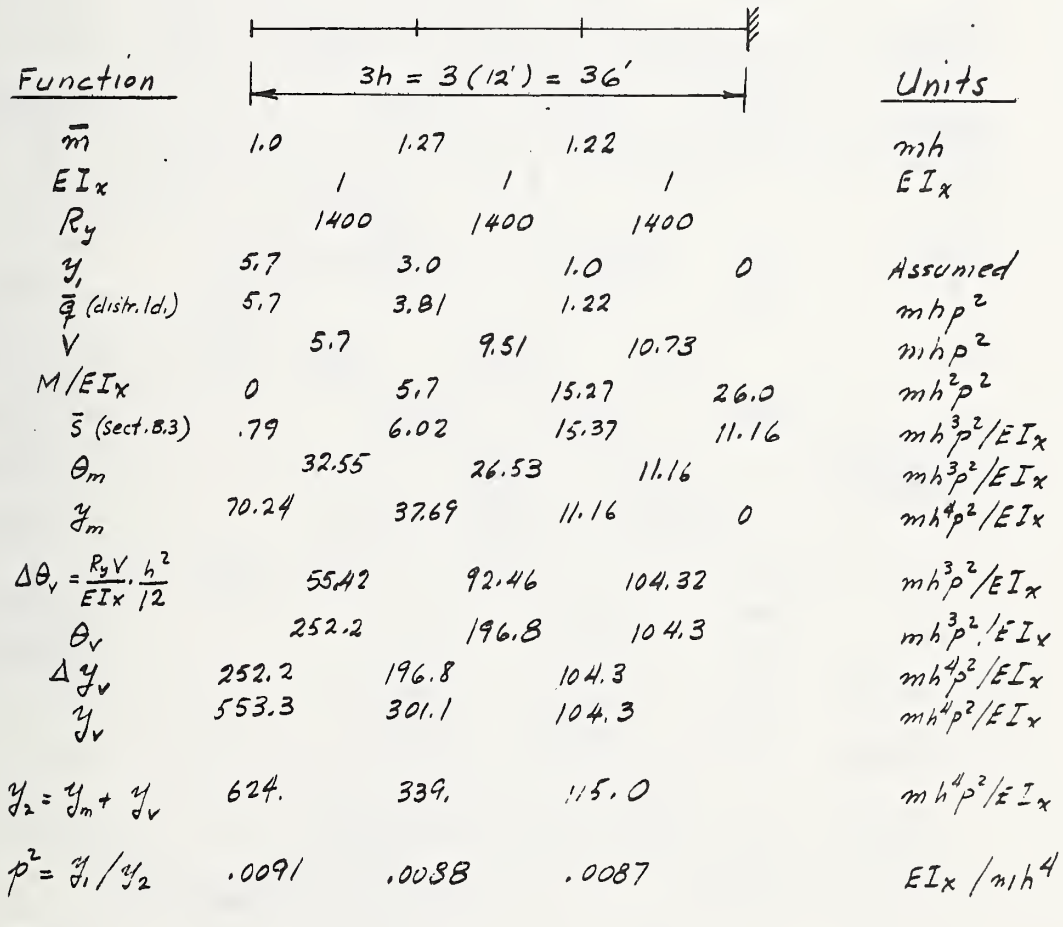 Function 3h = 3 (12') = 36' Units
m̄ 1.0 1.27 1.22 mh
EIx 1 1 1 EIx
Ry 1400 1400 1400
y₁ 5.7 3.0 1.0 0 Assumed
q̄ (distr. ld.) 5.7 3.81 1.22 mhp²
V 5.7 9.51 10.73 mhp²
M/EIx 0 5.7 15.27 26.0 mh²p²
s̄ (sect. B.3) .79 6.02 15.37 11.16 mh³p²/EIx
θm 32.55 26.53 11.16 mh³p²/EIx
ym 70.24 37.69 11.16 0 mh⁴p²/EIx
Δθv = RyV/EIx · h²/12 55.42 92.46 104.32 mh³p²/EIx
θv 252.2 196.8 104.3 mh³p²/EIx
Δyv 252.2 196.8 104.3 mh⁴p²/EIx
yv 553.3 301.1 104.3 mh⁴p²/EIx
y₂ = ym + yv 624. 339. 115.0 mh⁴p²/EIx
p² = y₁/y₂ .0091 .0088 .0087 EIx/mh⁴